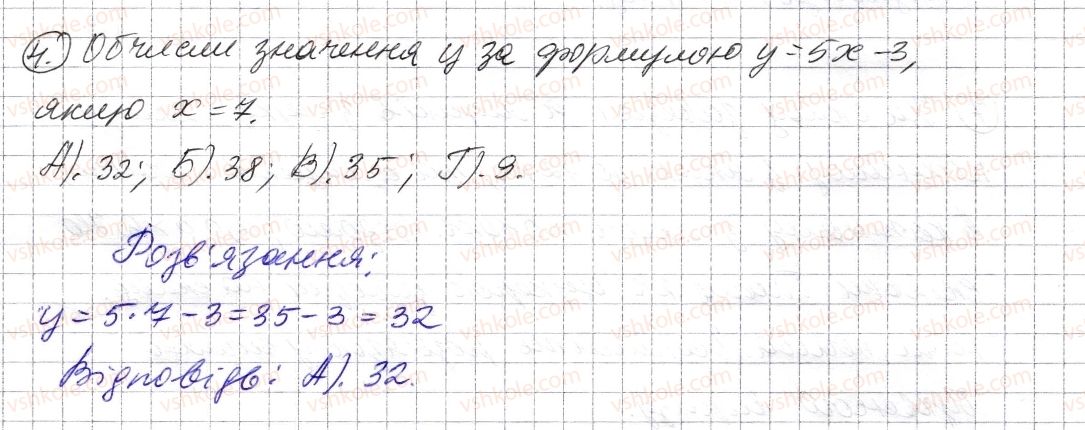 4.) Обчисли значення y за формулою y = 5x - 3,
якщо x = 7.
А). 32; Б). 38; В). 35; Г). 9.
Розв'язання:
y = 5·7 - 3 = 35 - 3 = 32
Відповідь: А). 32.